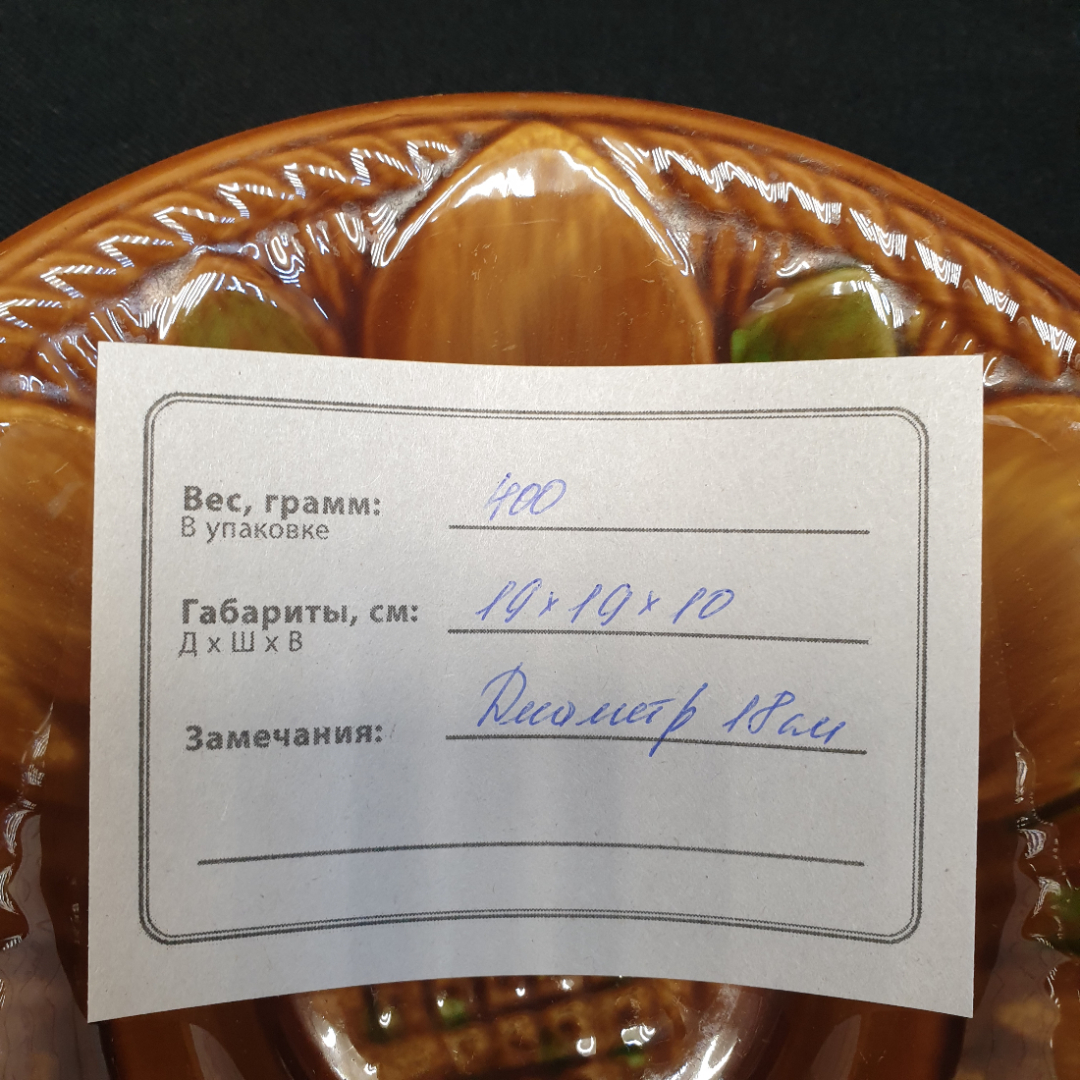 Вес, грамм: 400
В упаковке
Габариты, см: 19 х 19 х 10
Д х Ш х В
Замечания: Диаметр 18 см